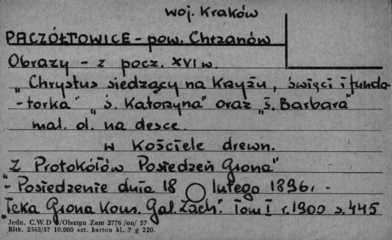 woj. Kraków
PACZÓŁTOWICE - pow. Chrzanów
Obrazy - z pocz. XVI w.
"Chrystus siedzący na Krzyżu, święci i funda-
-torka" "ś. Katarzyna" oraz "ś. Barbara"
mal. ol. na desce.
w Kościele drewn.
"Z Protokółów Posiedzeń Grona"
- Posiedzenie dnia 18 lutego 1896.
"Teka Grona Kons. Gal. Zach." Tom I r. 1900 s. 445
Jedn. C.W.D /Olsztyn Zam 2776/on/ 57
Bltk. 2563/57 10.000 szt. karton kl. 7 g 220.